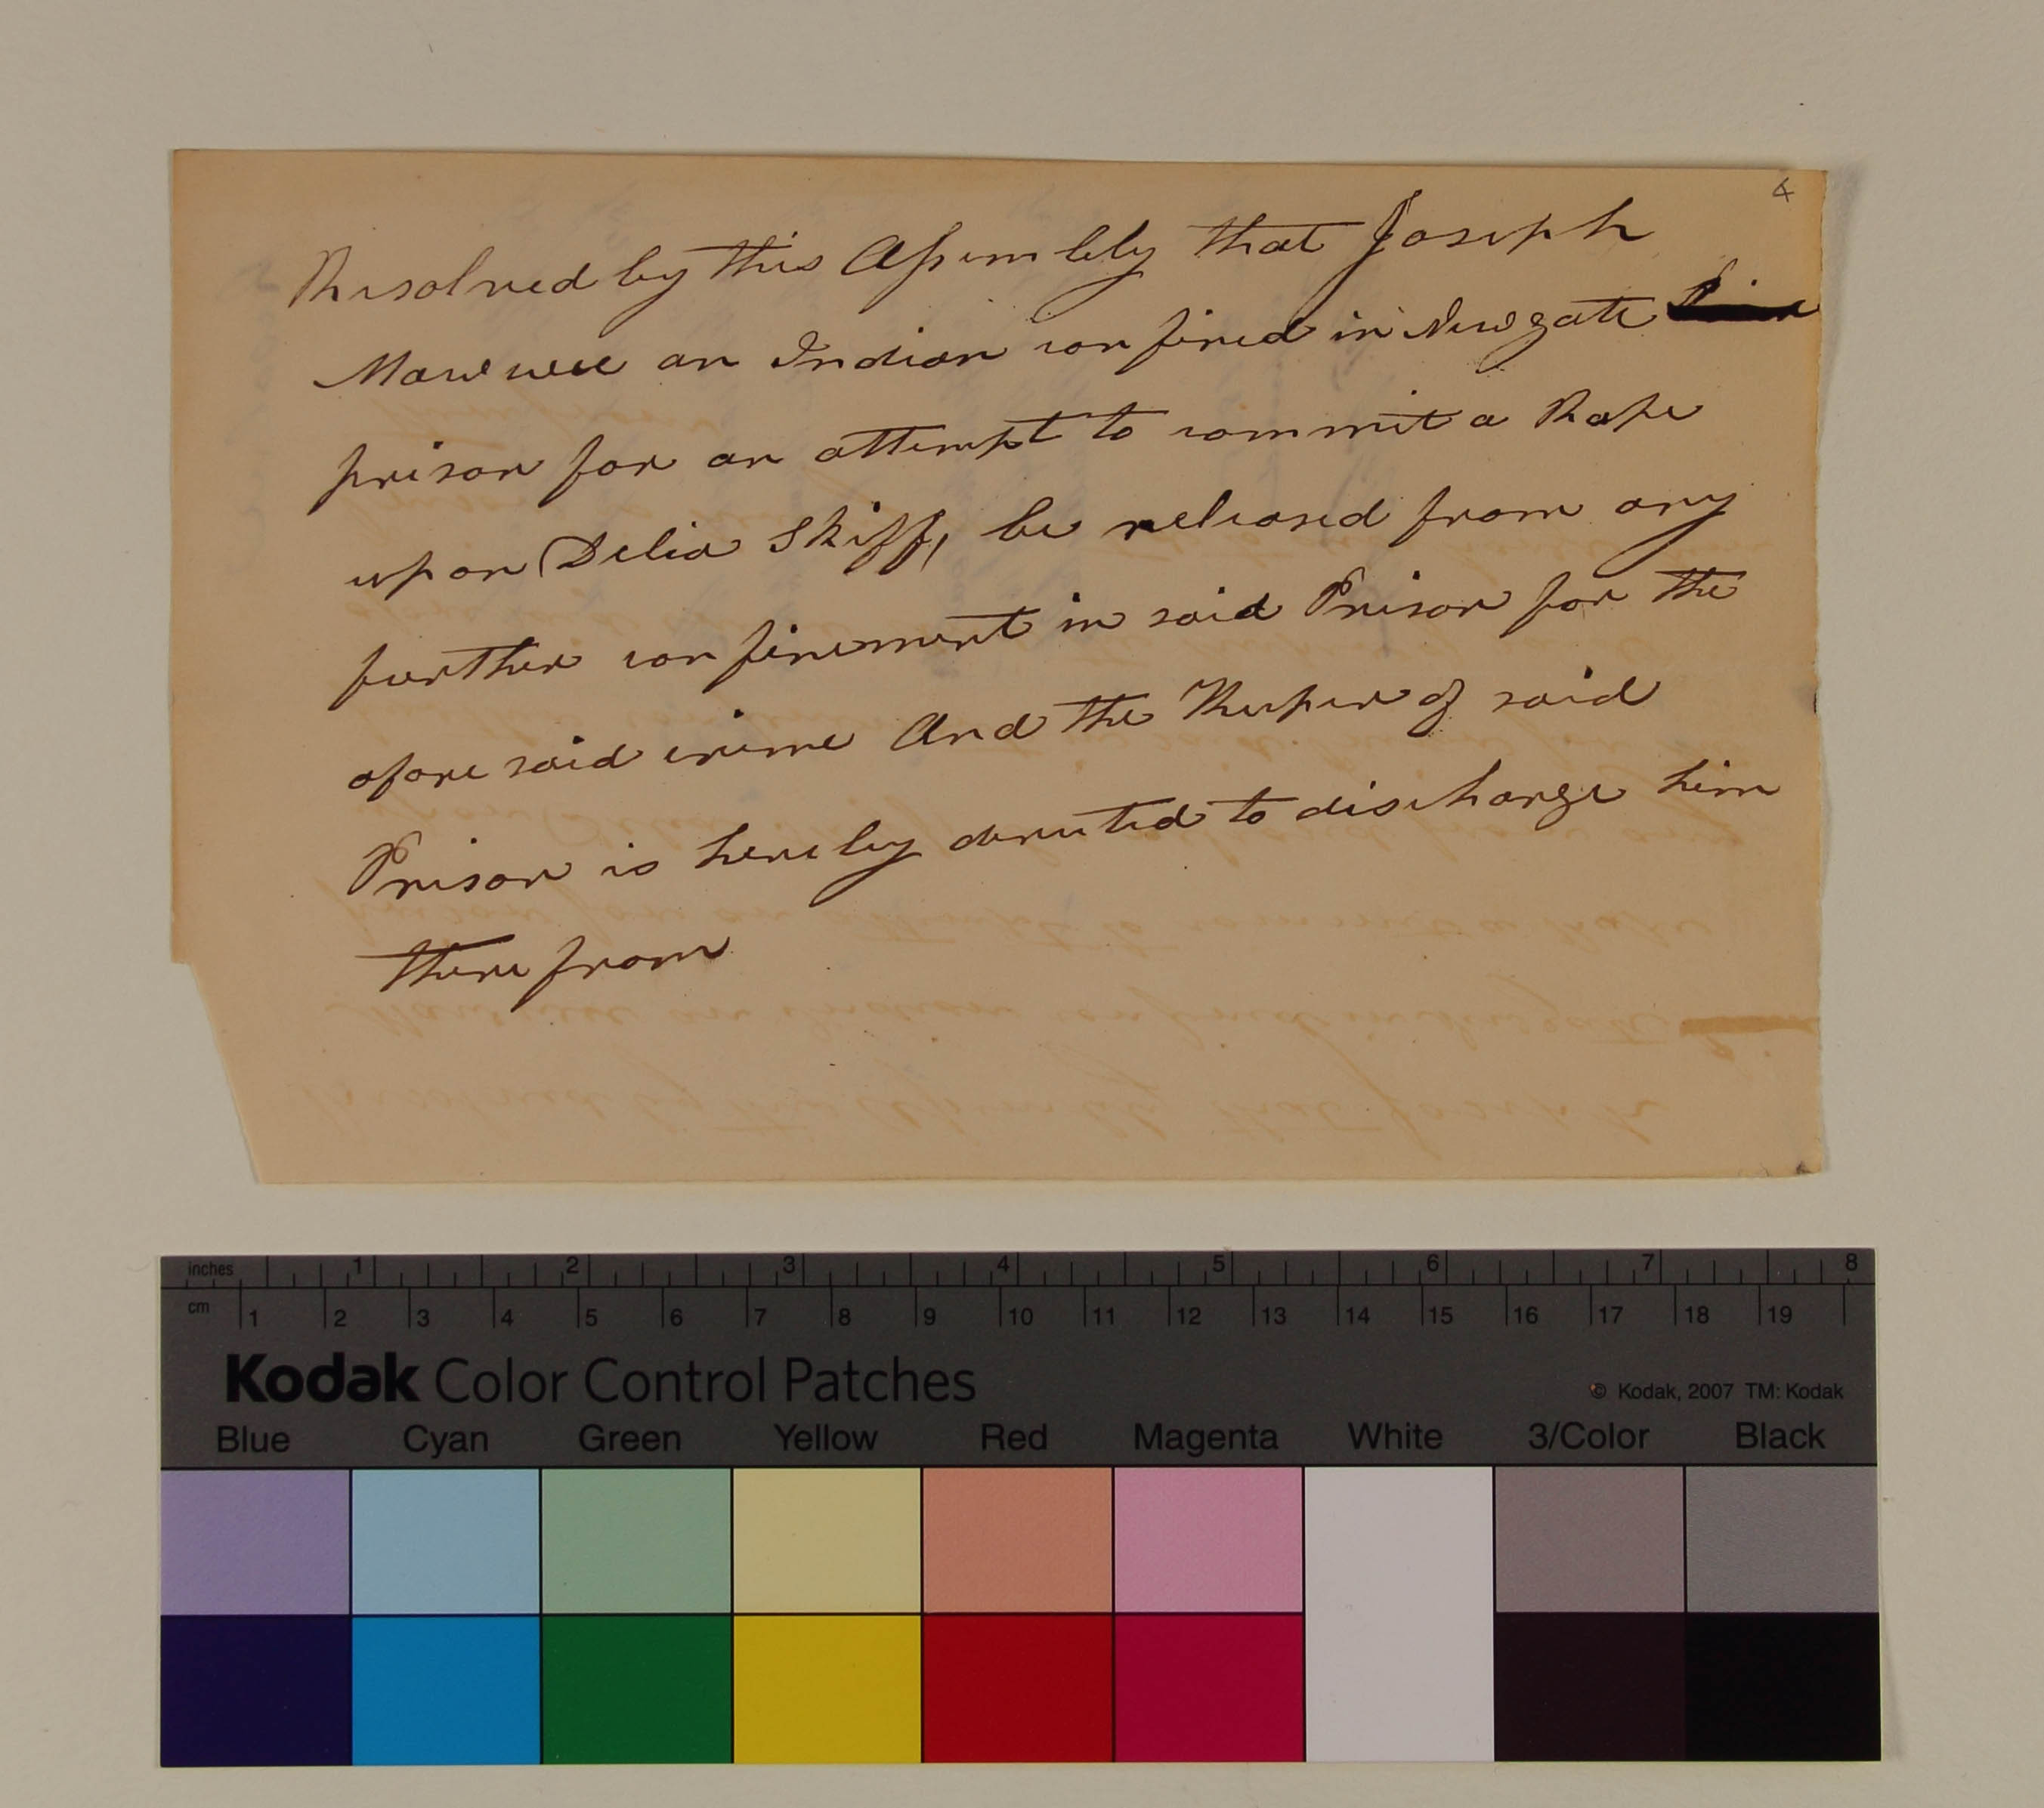 4
Resolved by this Assembly that Joseph
Mawwee an Indian confined in Newgate
prison for an attempt to commit a Rape
upon Delia Skiff, be released from any
further confinement in said Prison for the
afore said crime And the Keeper of said
Prison is hereby dericted to discharge him
there from
inches 1 2 3 4 5 6 7 8
cm 1 2 3 4 5 6 7 8 9 10 11 12 13 14 15 16 17 18 19
Kodak Color Control Patches © Kodak, 2007 TM: Kodak
Blue Cyan Green Yellow Red Magenta White 3/Color Black